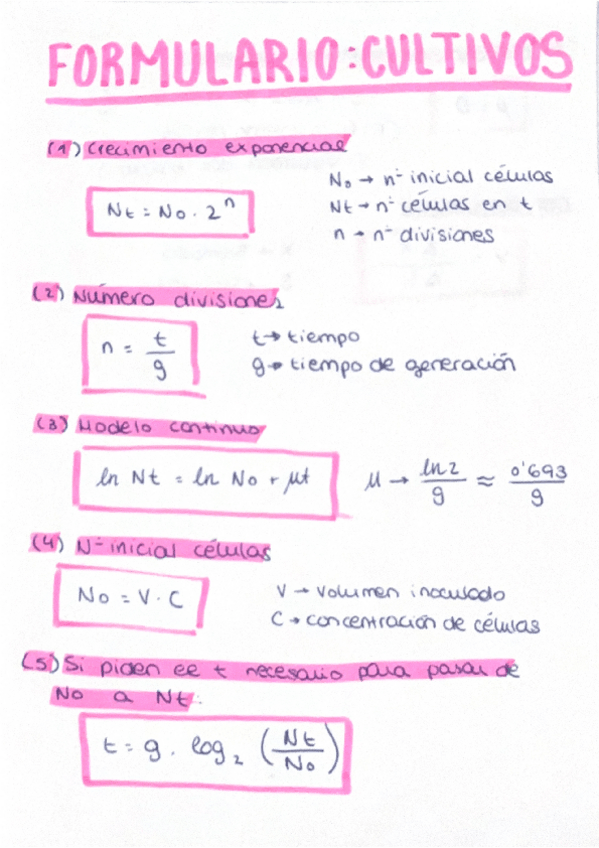 FORMULARIO: CULTIVOS
(1) Crecimiento exponencial
N₀ → nº inicial células
Nt = N₀ · 2ⁿ
Nt → nº células en t
n → nº divisiones
(2) Número divisiones
n = t/g
t → tiempo
g → tiempo de generación
(3) Modelo continuo
ln Nt = ln N₀ + μt
μ → ln 2/g ≈ 0'693/g
(4) Nº inicial células
N₀ = V · C
V → volumen inoculado
C → concentración de células
(5) Si piden el t necesario para pasar de
N₀ a Nt:
t = g · log₂ (Nt/N₀)